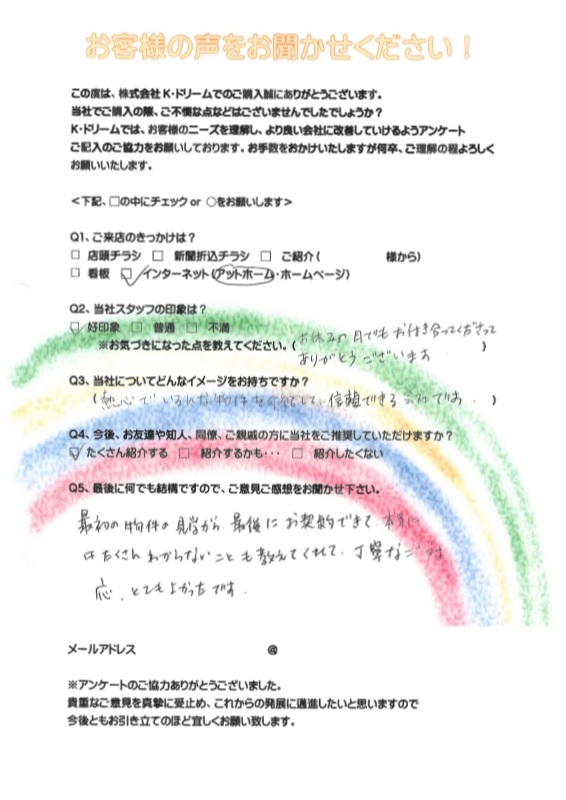 お客様の声をお聞かせください！
この度は、株式会社K・ドリームでのご購入誠にありがとうございます。
当社でご購入の際、ご不慣な点などはございませんでしたでしょうか？
K・ドリームでは、お客様のニーズを理解し、より良い会社に改善していけるようアンケート
ご記入のご協力をお願いしております。お手数をおかけいたしますが何卒、ご理解の程よろしく
お願いいたします。
＜下記、□の中にチェック or ○をお願いします＞
Q1、ご来店のきっかけは？
□ 店頭チラシ □ 新聞折込チラシ □ ご紹介（ 様から）
□ 看板 ☑ インターネット（アットホーム・ホームページ）
Q2、当社スタッフの印象は？
☑ 好印象 □ 普通 □ 不満
※お気づきになった点を教えてください。（お休みの日でもお付き合ってくださって
ありがとうございます ）
Q3、当社についてどんなイメージをお持ちですか？
（熱心でいろんな物件を 信頼できる会社です。）
Q4、今後、お友達や知人、同僚、ご親戚の方に当社をご推奨していただけますか？
☑ たくさん紹介する □ 紹介するかも・・・ □ 紹介したくない
Q5、最後に何でも結構ですので、ご意見ご感想をお聞かせ下さい。
最初の物件の見学から、最後にお契約できて、本当に
たくさんわからないことも教えてくれて、丁寧なご対
応、とてもよかったです。
メールアドレス @
※アンケートのご協力ありがとうございました。
貴重なご意見を真摯に受止め、これからの発展に邁進したいと思いますので
今後ともお引き立てのほど宜しくお願い致します。